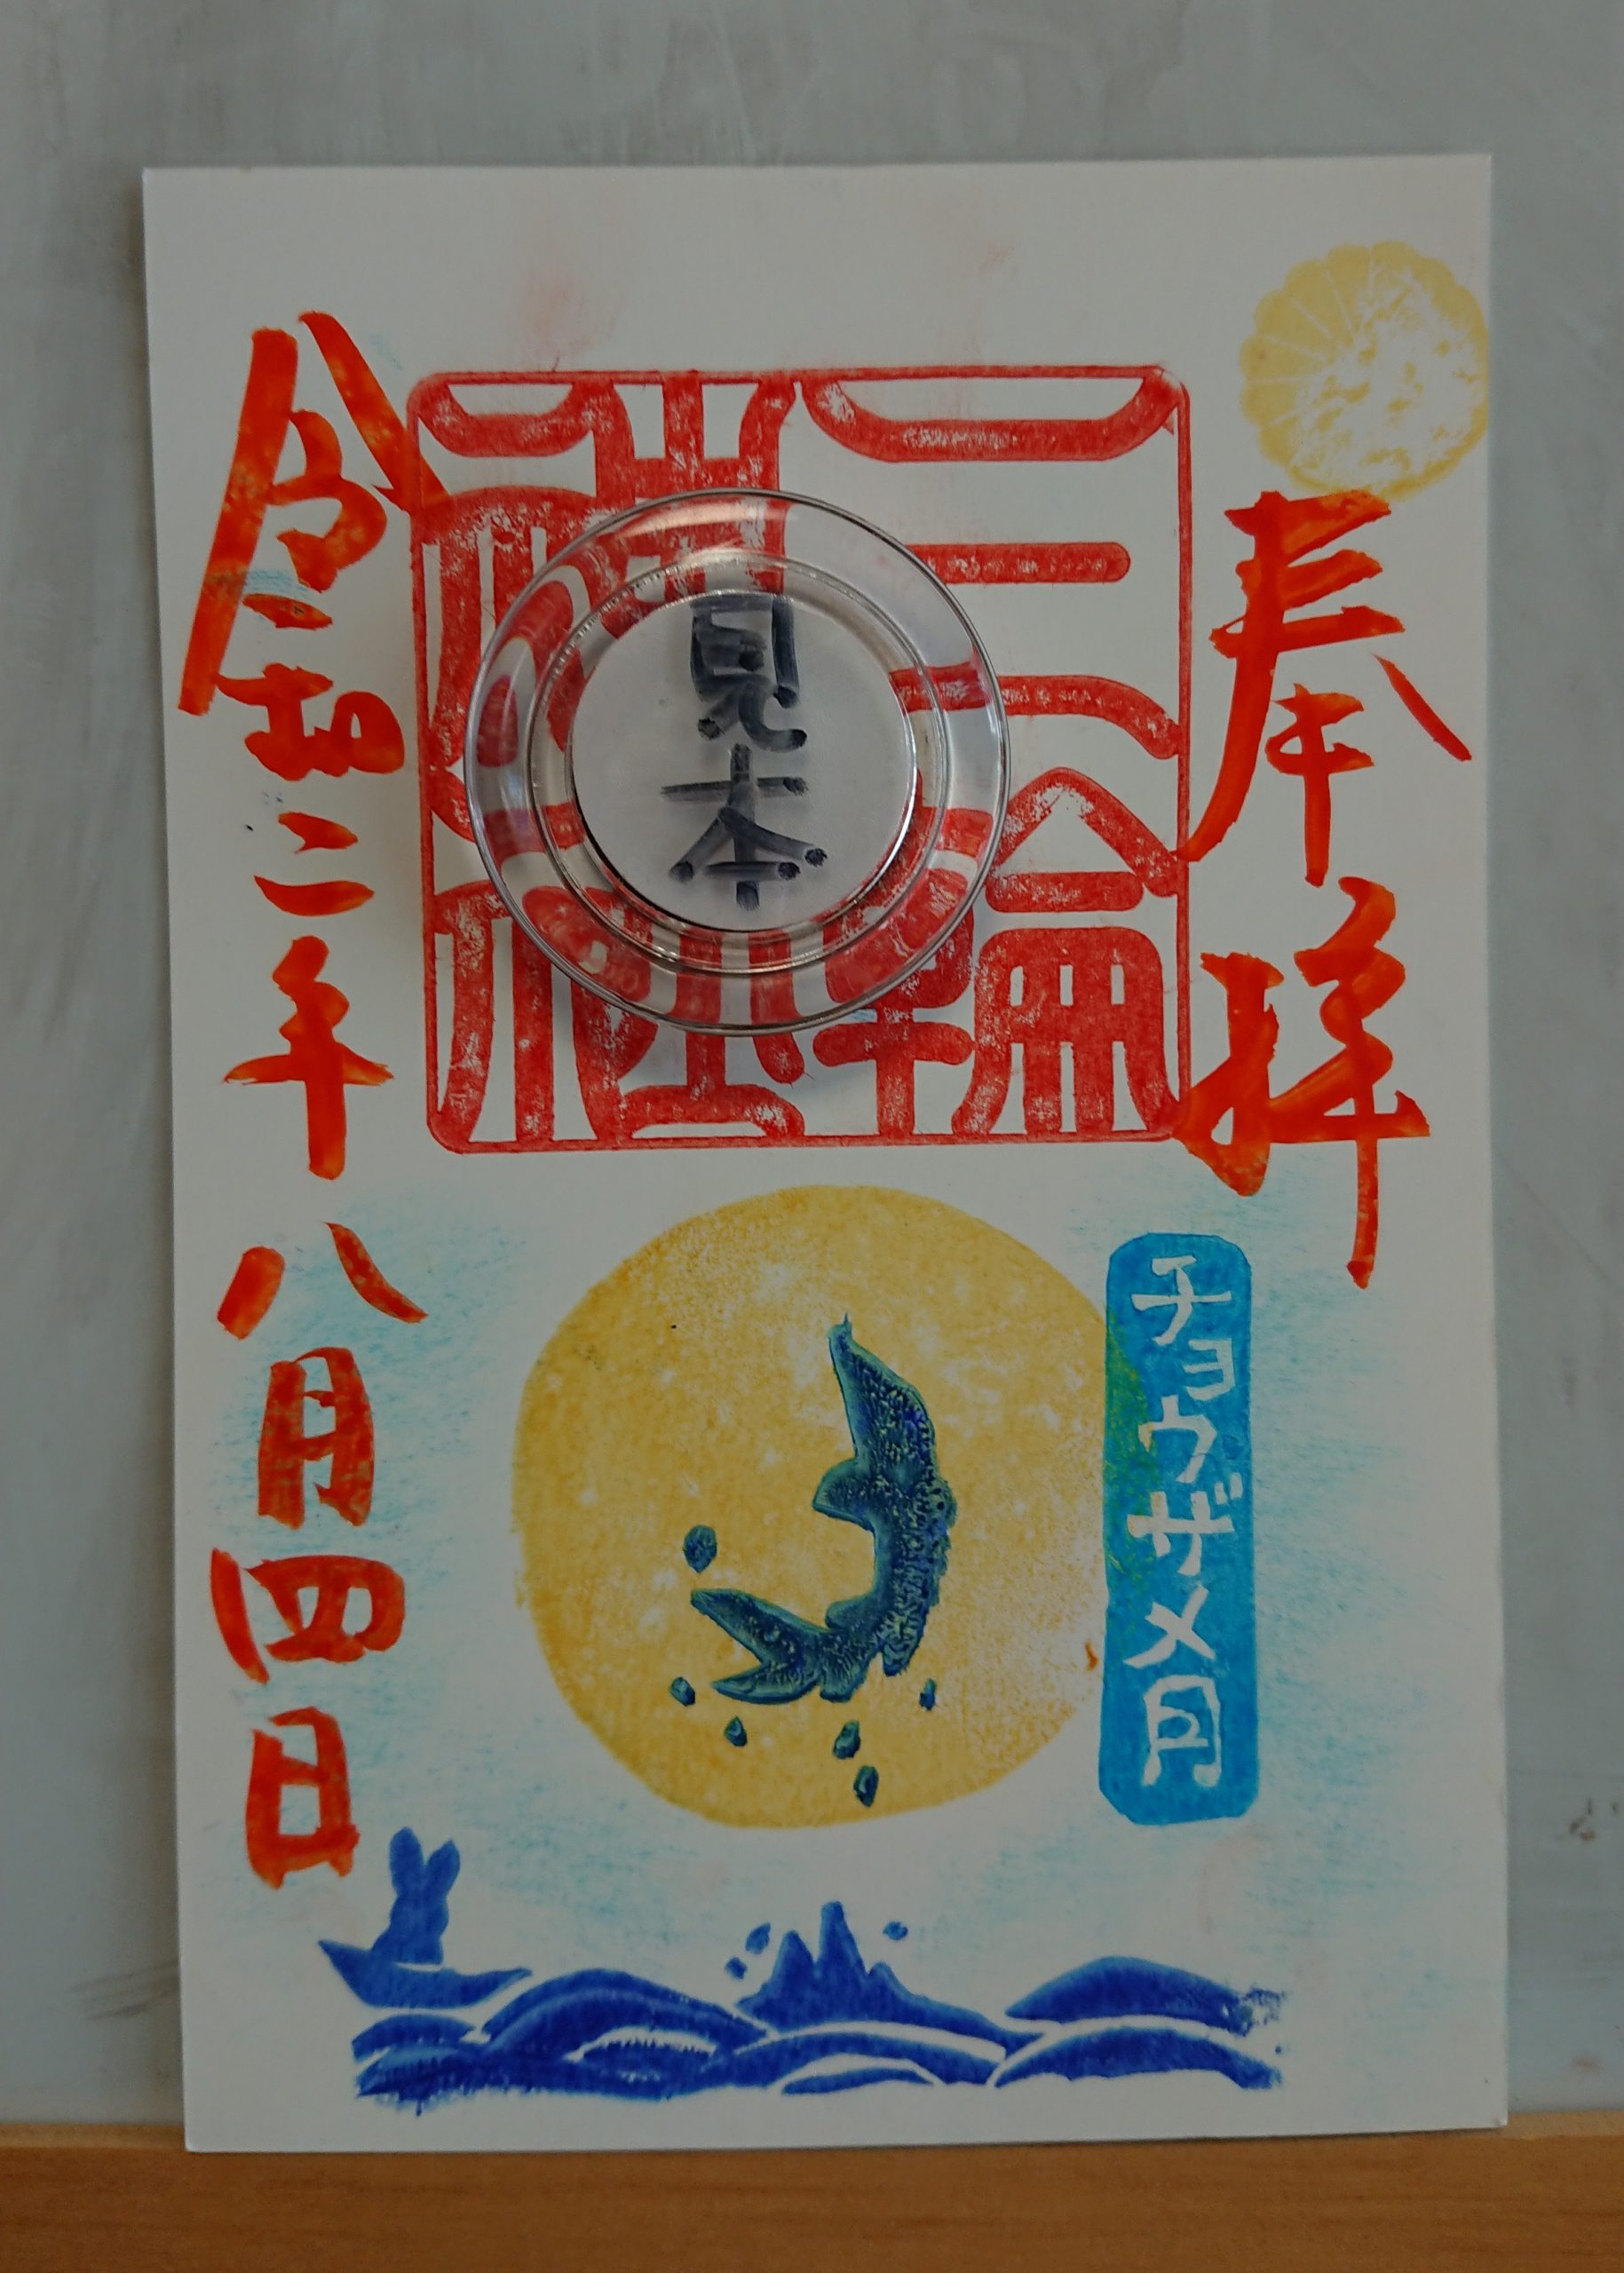 奉拝
三輪神社
見本
チョウザメ月
令和二年八月四日